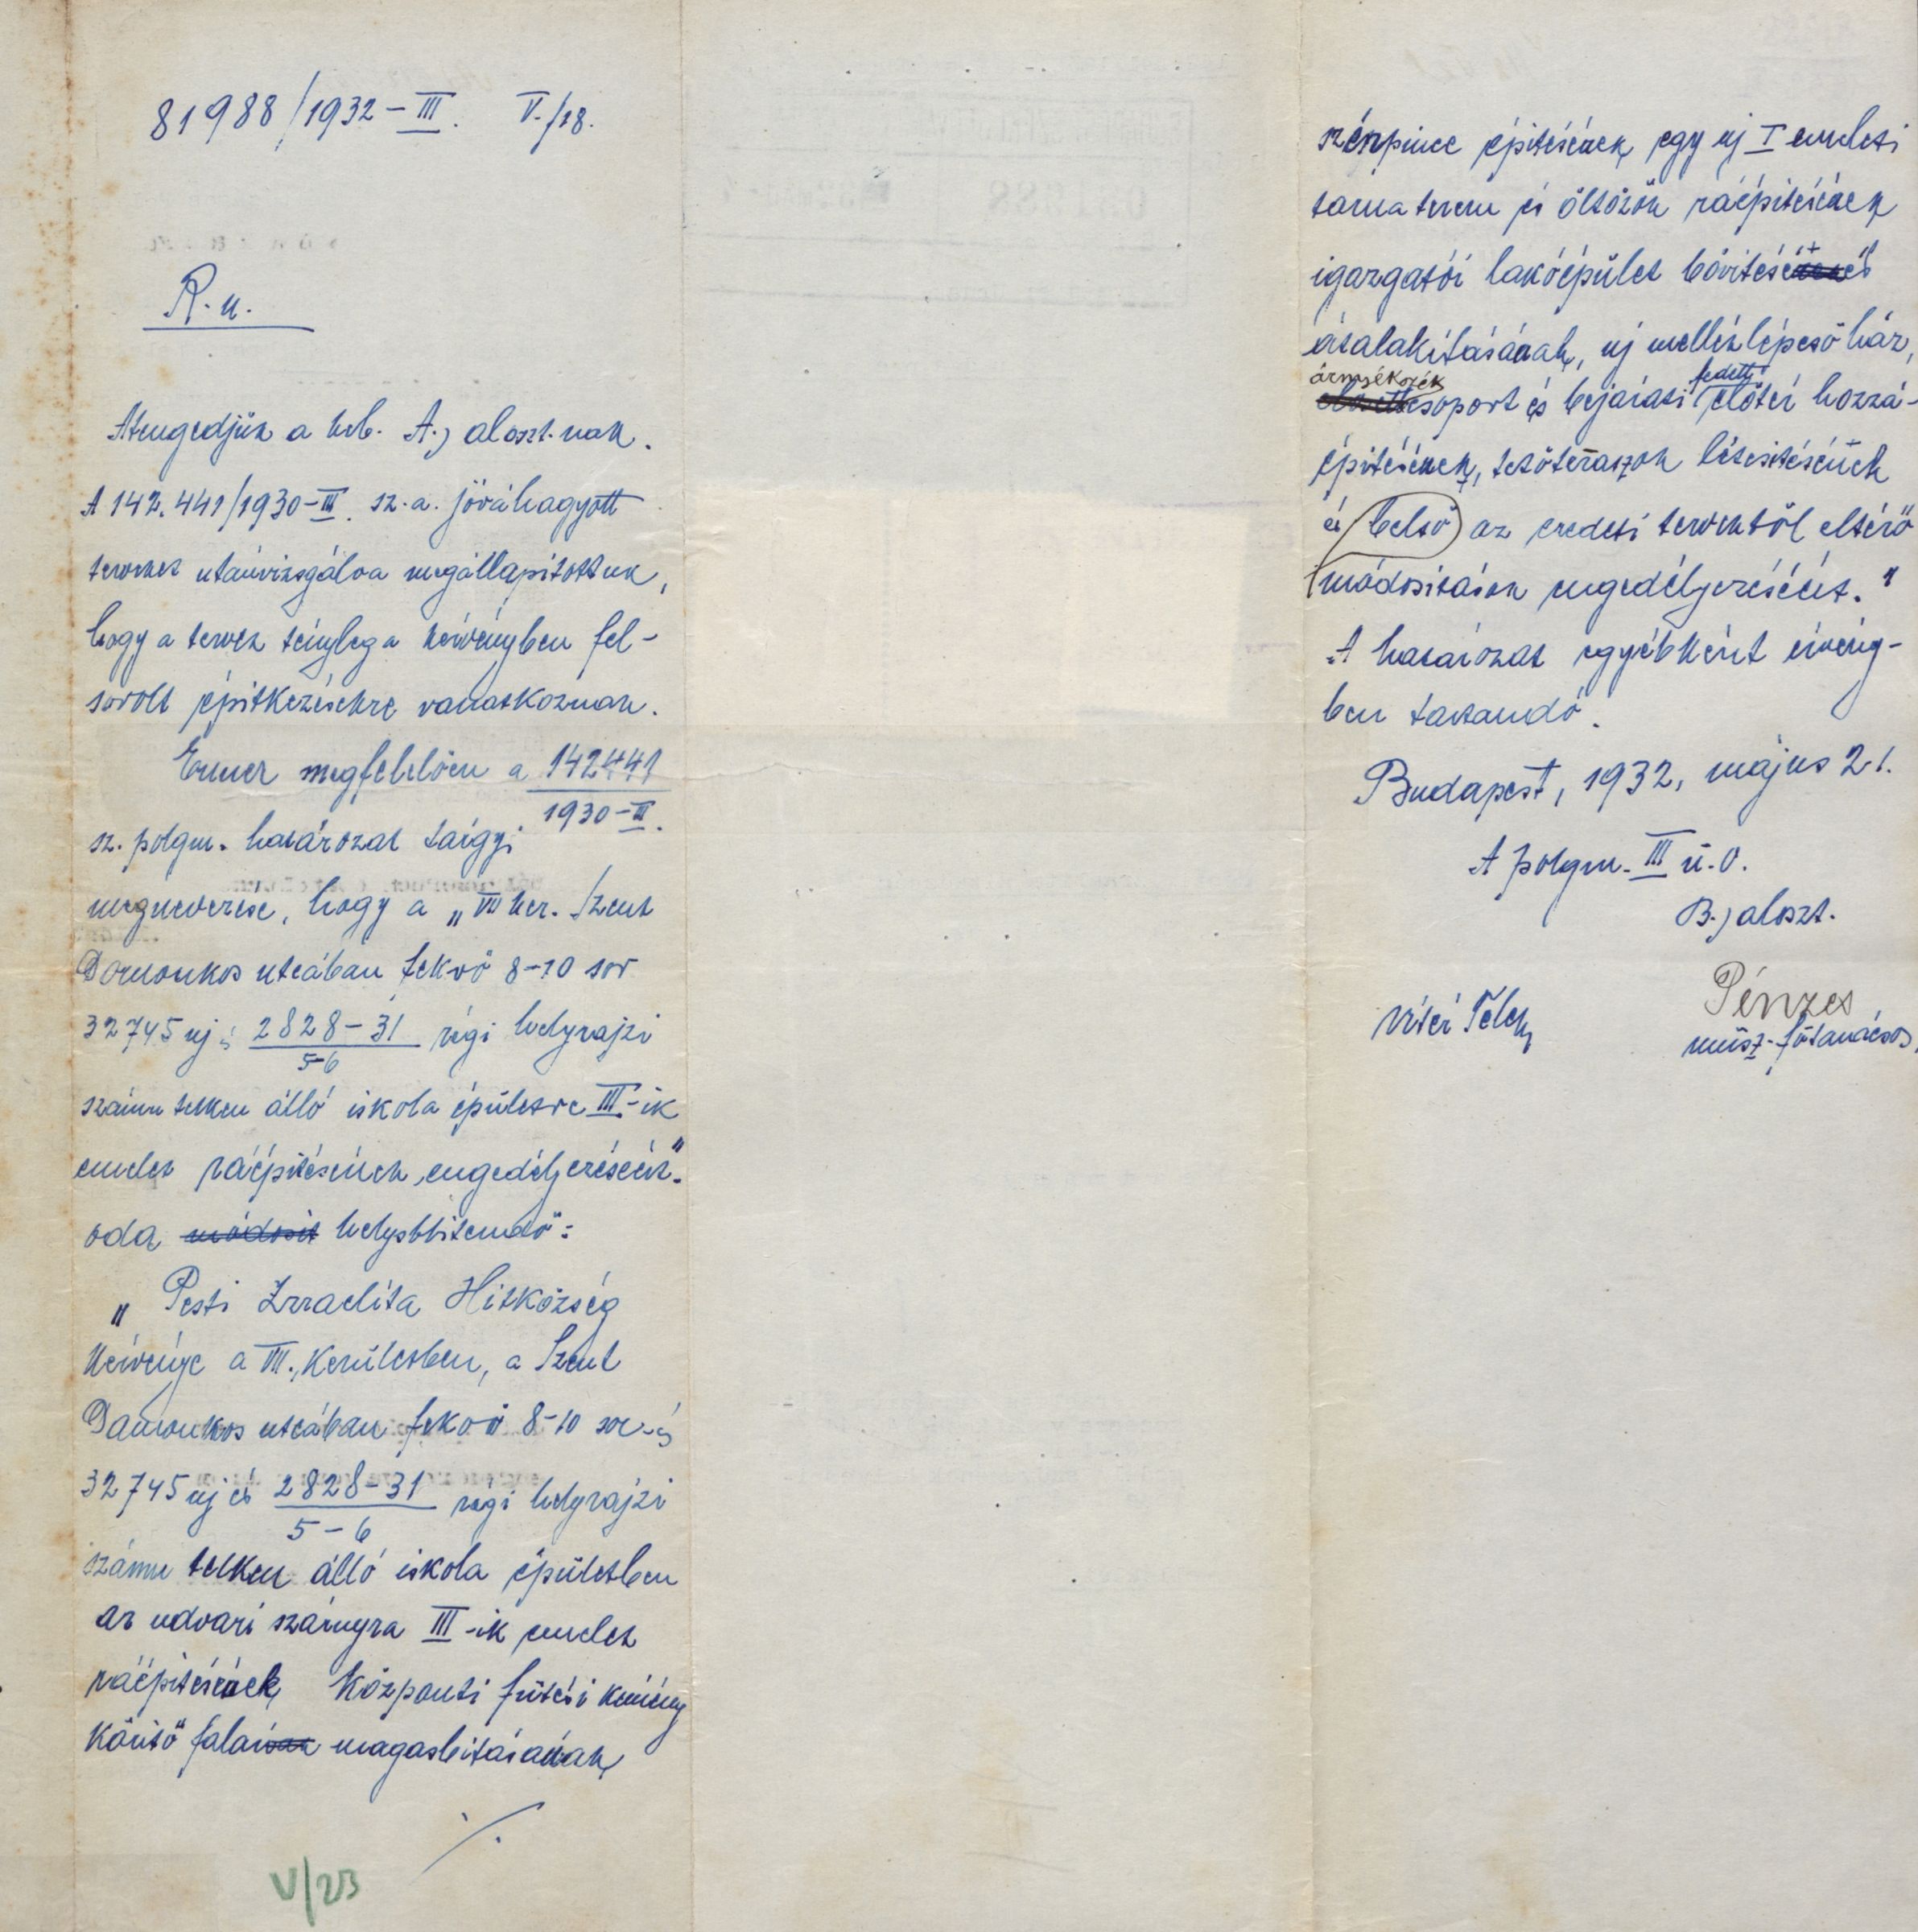 81988/1932-III. V./18.
R.u.
Átengedjük a keb. A.) aloszt.nak.
A 142.441/1930-III. sz.a. jóváhagyott
terveket utánvizsgálva megállapitottuk,
hogy a tervek tényleg a kérvényben fel-
sorolt épitkezésekre vonatkoznak.
Ennek megfelelően a 142441
1930-III.
sz. polgm. határozat tárgyi
megnevezése, hogy a „VII ker. Szent
Domonkos utcában fekvő 8-10 sor
32745 uj és 2828-31 régi helyrajzi
5-6
számu telken álló iskola épületre III-ik
emelet ráépitésének engedélyezéséért."
oda módosit helyesbbitendő:
„Pesti Izraelita Hitközség
kérvénye a VII., kerületben, a Szent
Damonkos utcában fekvő 8-10 sor-és
32745 uj és 2828-31 régi helyrajzi
5-6
számu telken álló iskola épületben
az udvari szárnyra III-ik emelet
ráépitésének Központi fűtési kémény
körítő falai magasbitásának
./.
V/23
szénpince épitésének egy uj I emeleti
torna terem és öltözők ráépitésének
igazgatói lakóépület bővitésé és
átalakitásának, uj mellék lépcső ház,
árnyékszék
csoport és bejárati előtér hozzá-
fedett
épitésének, tetőteraszok létesitésének
és belső az eredeti tervektől eltérő
módositások engedélyezéséért."
A határozat egyébként érvény-
ben tartandó.
Budapest, 1932, május 21.
A polgm. III ü.o.
B.) aloszt.
Pénzes
műsz. főtanácsos.